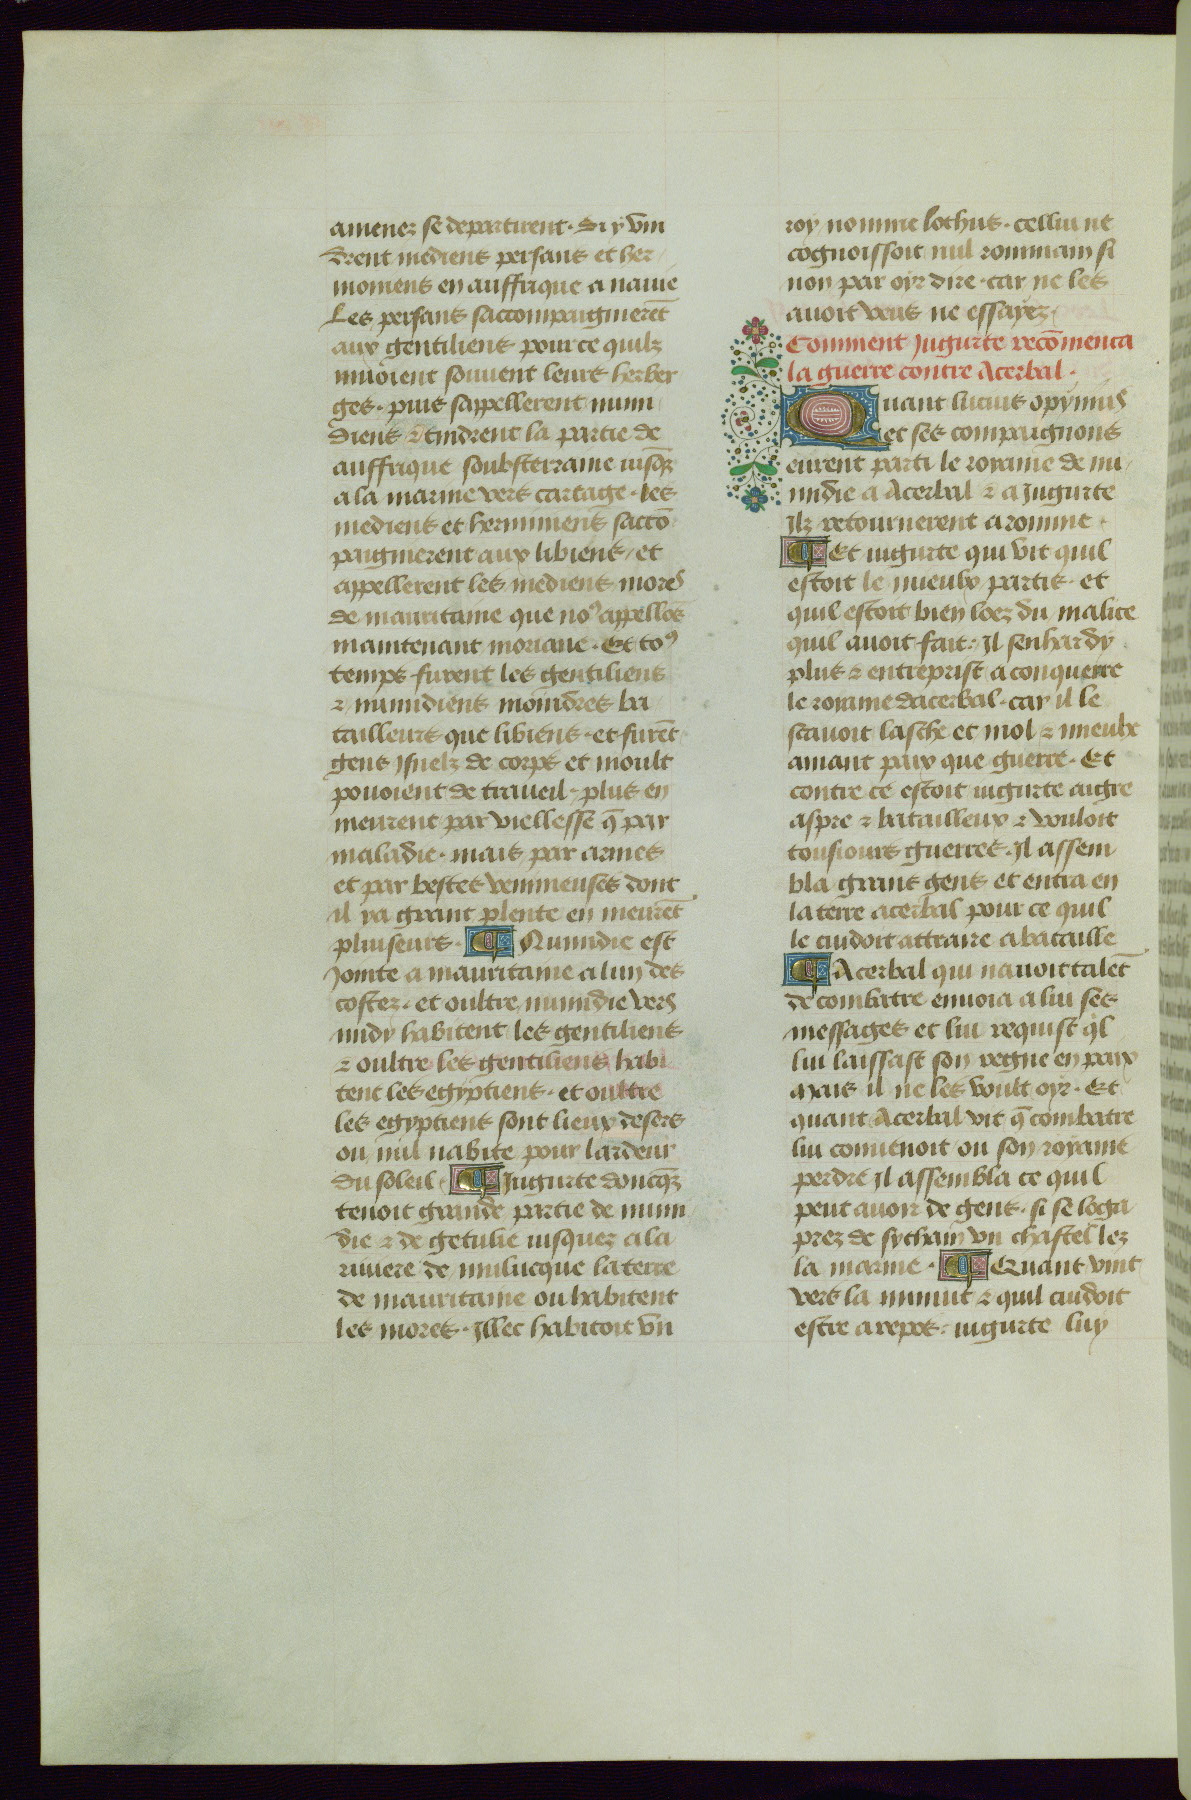 amenez se departirent. Si y vin
drent mediens persans et her
moniens en auffrique a navie
Les persans saccompaignerēt
aux gentiliens pource quilz
muoient souvent leurs herber
ges. puis sappellerent numi
diens & tindrent la partie de
auffrique soubsterraine iusq̄z
a la marine vers cartage. les
mediens et herminiens saccō
paignerent aux libiens / et
appellerent les mediens mores
de mauritaine que noꝰ appellōs
maintenant moriane. Et toꝰ
temps furent les gentiliens
& numidiens moindres ba
tailleurs que libiens. et furēt
gens isnelz de corps et moult
pouoient de traveil. plus en
meurent par viellesse q̄ par
maladie. mais par armes
et par bestes venimeuses dont
il ya grant plente en meurēt
pluiseurs. ¶ Numidie est
Jointe a mauritaine a lun des
costez. et oultre numidie vers
midy habitent les gentiliens
& oultre les gentiliens habi
tent les egyptiens. et oultre
les egyptiens sont lieux desers
ou nul nabite pour lardeur
du soleil. ¶ Jugurte doncq̄z
tenoit grande partie de numi
die & de getulie iusquez a la
riviere de mulucque la terre
de mauritaine ou habitent
les mores. Illec habitoit vn
roy nomme bochus. cellui ne
cognoissoit nul rommain si
non par oyr dire. car ne les
avoit veus ne essayez.
Comment Jugurte recōmenca
la guerre contre Acerbal.
Quant lucius opymius
et ses compaignons
eurent parti le royame de nu
midie a Acerbal & a Jugurte
Ilz retournerent a romme.
¶ Et iugurte qui vit quil
estoit le mieulx partis. et
quil estoit bien loez du malice
quil avoit fait. Il senhardy
plus & entreprist a conquerre
le royame dacerbal. car il le
scavoit lasche et mol & mieulx
amant paix que guerre. Et
contre ce estoit iugurte aigre
aspre & batailleux & vouloit
tousiours guerres. Il assem
bla grans gens et entra en
la terre acerbal pour ce quil
le cuidoit attraire a bataille
¶ Acerbal qui navoit talēt
de combatre envoia a lui ses
messages et lui requist q̄l
lui laissast son regne en paix
Mais il ne les voult oyr. Et
quant Acerbal vit q̄ combatre
lui convenoit ou son royame
perdre Il assembla ce quil
peut avoir de gens. si se loga
prez de sythain vn chastel lez
la marine. ¶ Quant vint
vers la minuit & quil cuidoit
estre a repos. iugurte luy